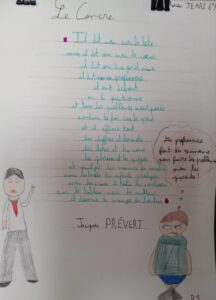 Le Cancre
Il dit non avec la tête
mais il dit oui avec le cœur
il dit oui à ce qu'il aime
il dit non au professeur
il est debout
on le questionne
et tous les problèmes sont posés
soudain le fou rire le prend
et il efface tout
les chiffres et les mots
les dates et les noms
les phrases et les pièges
et malgré les menaces du maître
sous les huées des enfants prodiges
avec des craies de toutes les couleurs
sur le tableau noir du malheur
il dessine le visage du bonheur
Jacques PRÉVERT
Les professeurs
font les
pour
les problèmes